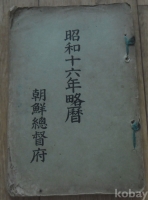 昭和十六年略曆
朝鮮總督府
kobay